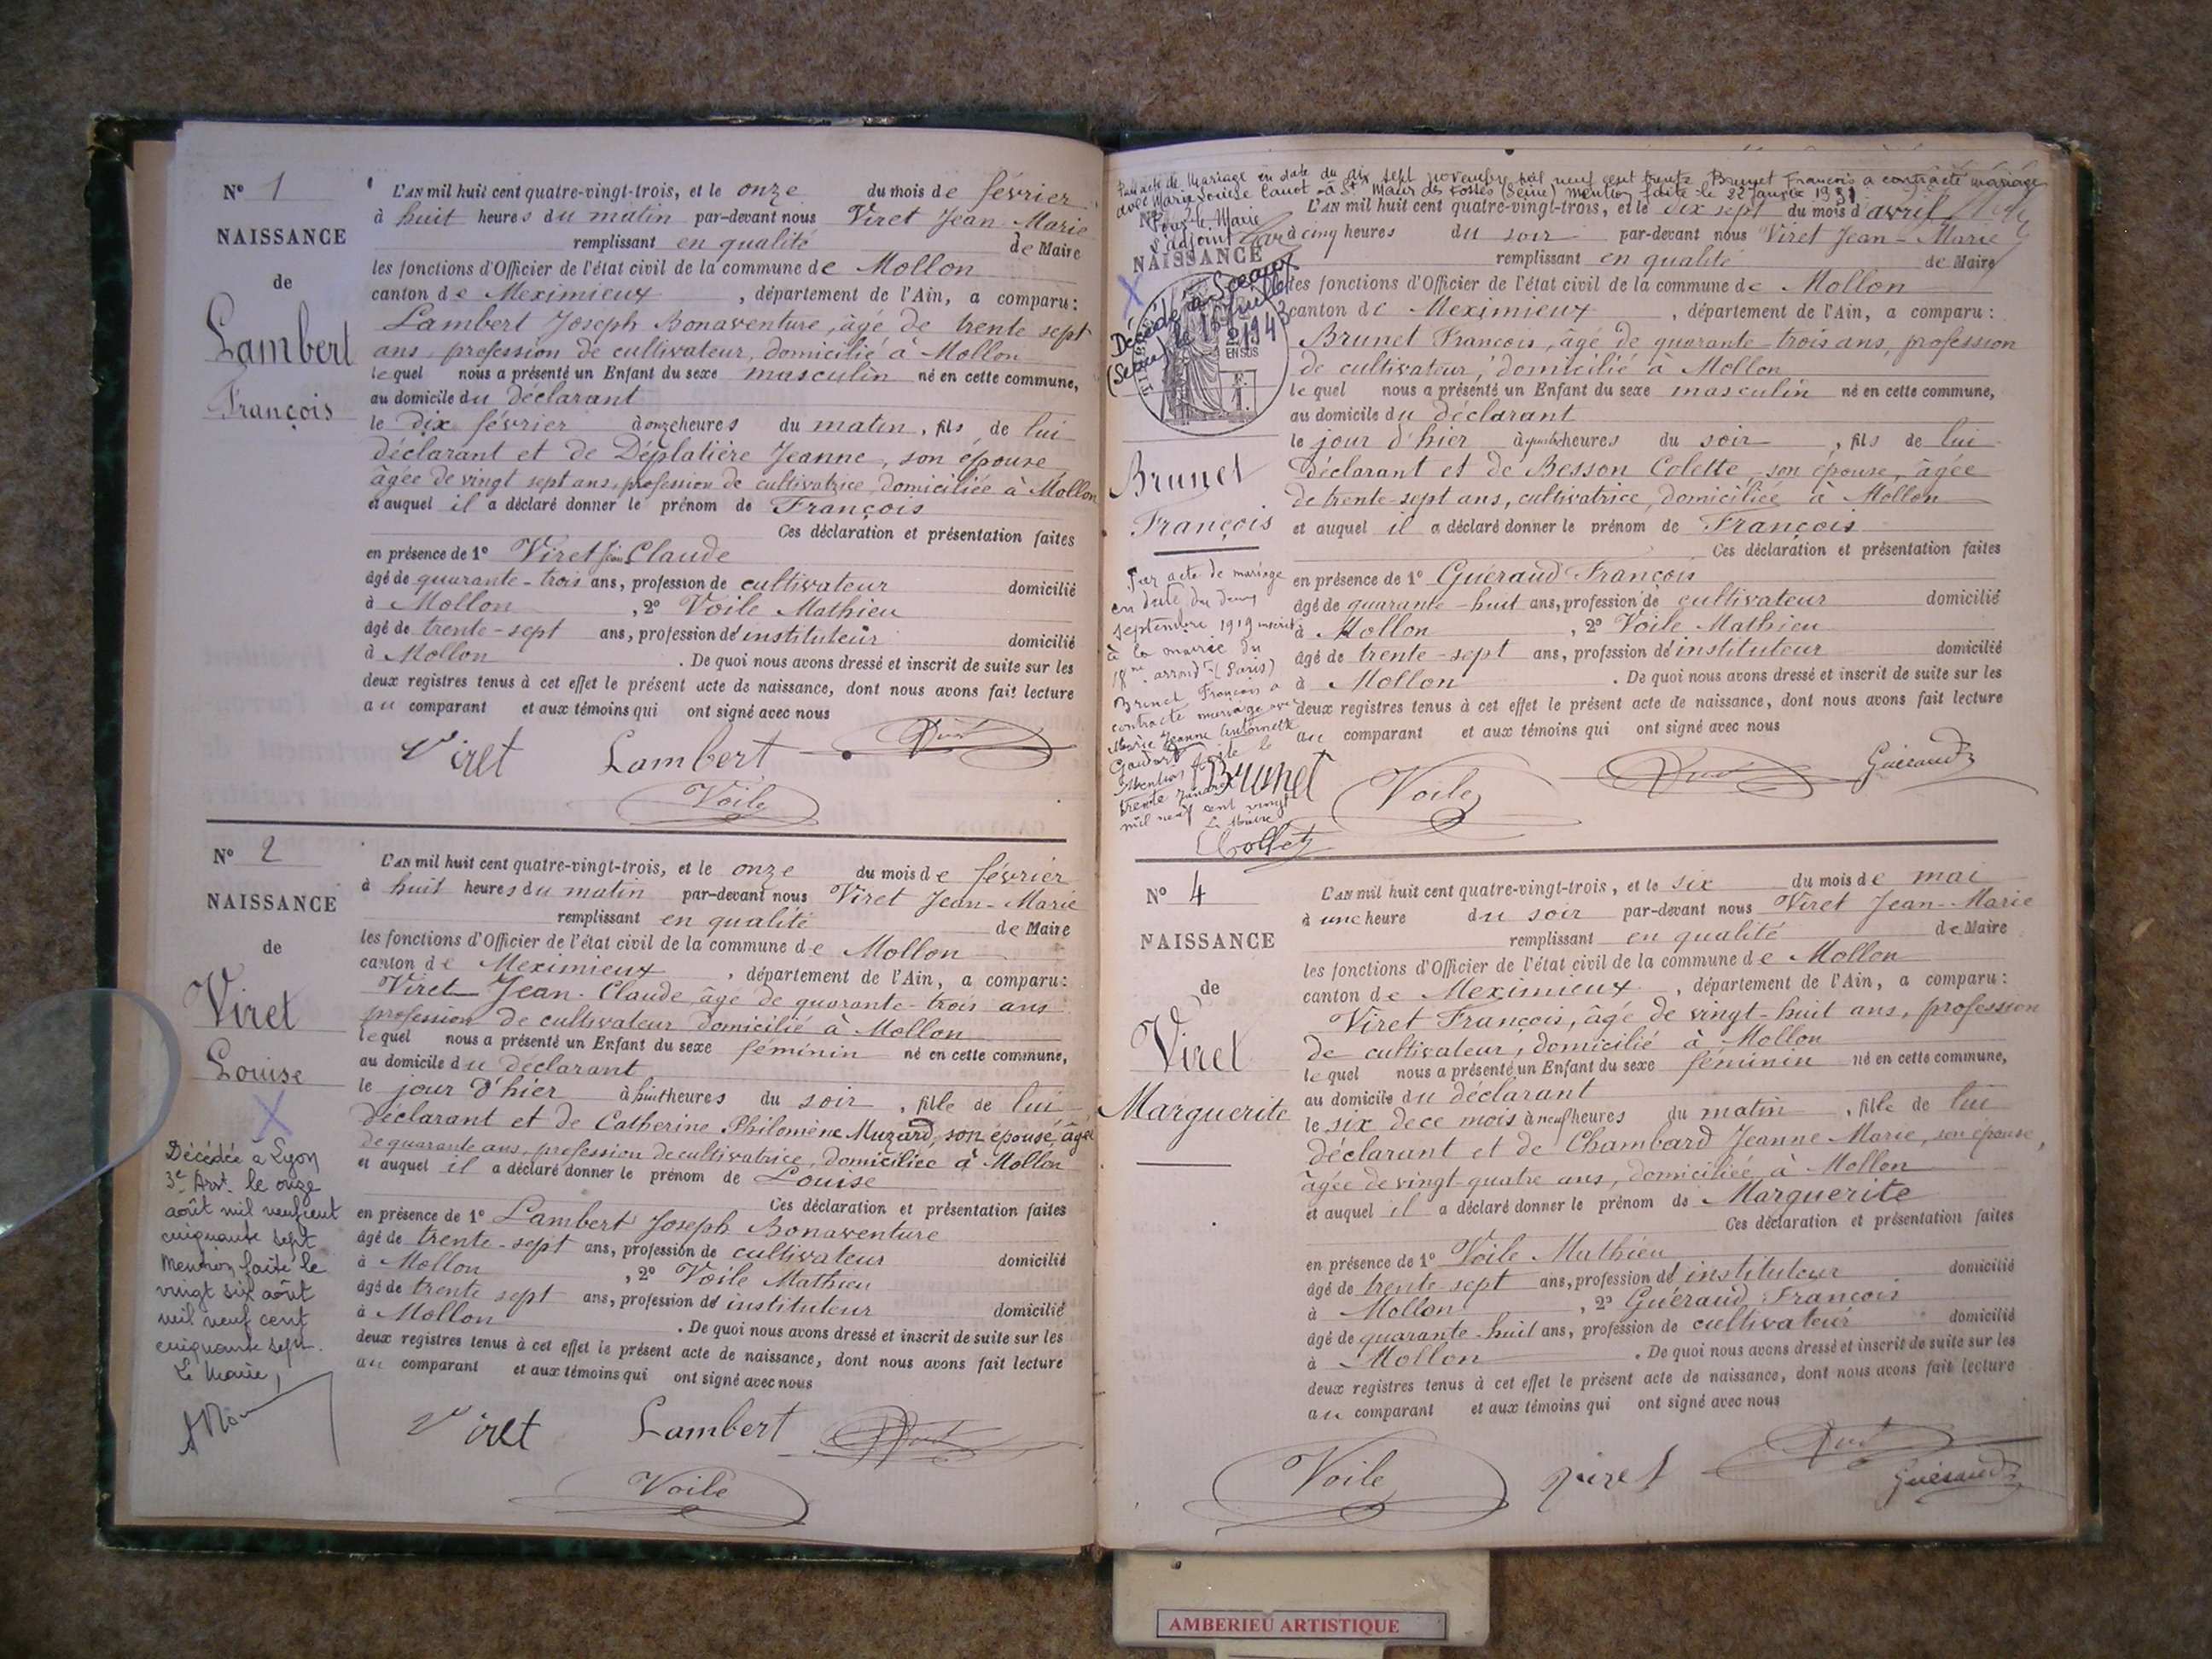 N° 1
NAISSANCE
de
Lambert
François
L'AN mil huit cent quatre-vingt-trois, et le onze du mois de février
à huit heures du matin par-devant nous Viret Jean-Marie
remplissant en qualité de Maire
les fonctions d'Officier de l'état civil de la commune de Mollon
canton de Meximieux, département de l'Ain, a comparu:
Lambert Joseph Bonaventure, âgé de trente sept
ans, profession de cultivateur, domicilié à Mollon
lequel nous a présenté un Enfant du sexe masculin né en cette commune,
au domicile du déclarant
le dix février à onze heures du matin, fils de lui
déclarant et de Déplatière Jeanne, son épouse
âgée de vingt sept ans, profession de cultivatrice, domiciliée à Mollon
et auquel il a déclaré donner le prénom de François
Ces déclaration et présentation faites
en présence de 1° Viret Jean Claude
âgé de quarante-trois ans, profession de cultivateur domicilié
à Mollon, 2° Voile Mathieu
âgé de trente-sept ans, profession d'instituteur domicilié
à Mollon. De quoi nous avons dressé et inscrit de suite sur les
deux registres tenus à cet effet le présent acte de naissance, dont nous avons fait lecture
au comparant et aux témoins qui ont signé avec nous
Viret Lambert
Voile
N° 2
NAISSANCE
de
Viret
Louise
Décédée à Lyon
3e Arrt. le onze
août mil neuf cent
cinquante sept
Mention faite le
vingt six août
mil neuf cent
cinquante sept.
Le Maire,
L'AN mil huit cent quatre-vingt-trois, et le onze du mois de février
à huit heures du matin par-devant nous Viret Jean-Marie
remplissant en qualité de Maire
les fonctions d'Officier de l'état civil de la commune de Mollon
canton de Meximieux, département de l'Ain, a comparu:
Viret Jean-Claude âgé de quarante-trois ans
profession de cultivateur domicilié à Mollon
lequel nous a présenté un Enfant du sexe féminin né en cette commune,
au domicile du déclarant
le jour d'hier à huit heures du soir, fille de lui
déclarant et de Catherine Philomène Muzard, son épouse, âgée
de quarante ans, profession de cultivatrice, domiciliée à Mollon
et auquel il a déclaré donner le prénom de Louise
Ces déclaration et présentation faites
en présence de 1° Lambert Joseph Bonaventure
âgé de trente-sept ans, profession de cultivateur domicilié
à Mollon, 2° Voile Mathieu
âgé de trente sept ans, profession d'instituteur domicilié
à Mollon. De quoi nous avons dressé et inscrit de suite sur les
deux registres tenus à cet effet le présent acte de naissance, dont nous avons fait lecture
au comparant et aux témoins qui ont signé avec nous
Viret Lambert
Voile
Par acte de Mariage en date du dix sept novembre mil neuf cent trente Brunet François a contracté mariage
avec Marie Louise Canot à St Maur des Fossés (Seine) Mention faite le 22 Janvier 1931
Pour le Maire
l'adjoint
NAISSANCE
Décédé à Sceaux
(Seine) le 15 Juillet
1943
EN SUS
Brunet
François
Par acte de mariage
en date du deux
septembre 1919 inscrit
à la mairie du
18me arrondt (Paris)
Brunet François a
contracté mariage avec
Marie Jeanne Antoinette
Gaudart
Mention faite le
trente janvier
mil neuf cent vingt
Le Maire
Collet
L'AN mil huit cent quatre-vingt-trois, et le dix sept du mois d'avril
à cinq heures du soir par-devant nous Viret Jean-Marie
remplissant en qualité de Maire
les fonctions d'Officier de l'état civil de la commune de Mollon
canton de Meximieux, département de l'Ain, a comparu:
Brunet François, âgé de quarante-trois ans, profession
de cultivateur, domicilié à Mollon
lequel nous a présenté un Enfant du sexe masculin né en cette commune,
au domicile du déclarant
le jour d'hier à quatre heures du soir, fils de lui
déclarant et de Besson Colette, son épouse, âgée
de trente-sept ans, cultivatrice, domiciliée à Mollon
et auquel il a déclaré donner le prénom de François
Ces déclaration et présentation faites
en présence de 1° Guéraud François
âgé de quarante-huit ans, profession de cultivateur domicilié
à Mollon, 2° Voile Mathieu
âgé de trente-sept ans, profession d'instituteur domicilié
à Mollon. De quoi nous avons dressé et inscrit de suite sur les
deux registres tenus à cet effet le présent acte de naissance, dont nous avons fait lecture
au comparant et aux témoins qui ont signé avec nous
Brunet Voile Guéraud
N° 4
NAISSANCE
de
Viret
Marguerite
L'AN mil huit cent quatre-vingt-trois, et le six du mois de mai
à une heure du soir par-devant nous Viret Jean-Marie
remplissant en qualité de Maire
les fonctions d'Officier de l'état civil de la commune de Mollon
canton de Meximieux, département de l'Ain, a comparu:
Viret François, âgé de vingt-huit ans, profession
de cultivateur, domicilié à Mollon
lequel nous a présenté un Enfant du sexe féminin né en cette commune,
au domicile du déclarant
le six de ce mois à neuf heures du matin, fille de lui
déclarant et de Chambard Jeanne Marie, son épouse,
âgée de vingt-quatre ans, domiciliée à Mollon
et auquel il a déclaré donner le prénom de Marguerite
Ces déclaration et présentation faites
en présence de 1° Voile Mathieu
âgé de trente-sept ans, profession d'instituteur domicilié
à Mollon, 2° Guéraud François
âgé de quarante-huit ans, profession de cultivateur domicilié
à Mollon. De quoi nous avons dressé et inscrit de suite sur les
deux registres tenus à cet effet le présent acte de naissance, dont nous avons fait lecture
au comparant et aux témoins qui ont signé avec nous
Voile Viret Guéraud
AMBERIEU ARTISTIQUE